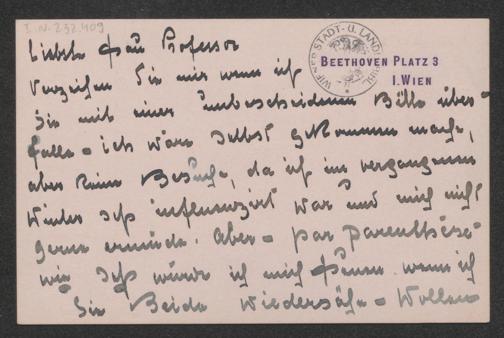 I.N. 232.409
WIENER STADT- U. LANDBIBL.
BEETHOVEN PLATZ 3
I. WIEN
Liebste Frau Professor
Verzeihen Sie mir wenn ich
Sie mit einer unbescheidenen Bitte über-
falle = ich wäre selbst gekommen mache,
aber keine Besuche, da ich im vergangenen
Winter sehr influenziert war und mich nicht
gerne ermüde. Aber = par parenthèse =
wie sehr würde ich mich freuen wenn ich
Sie Beide wiedersähe = Wollen